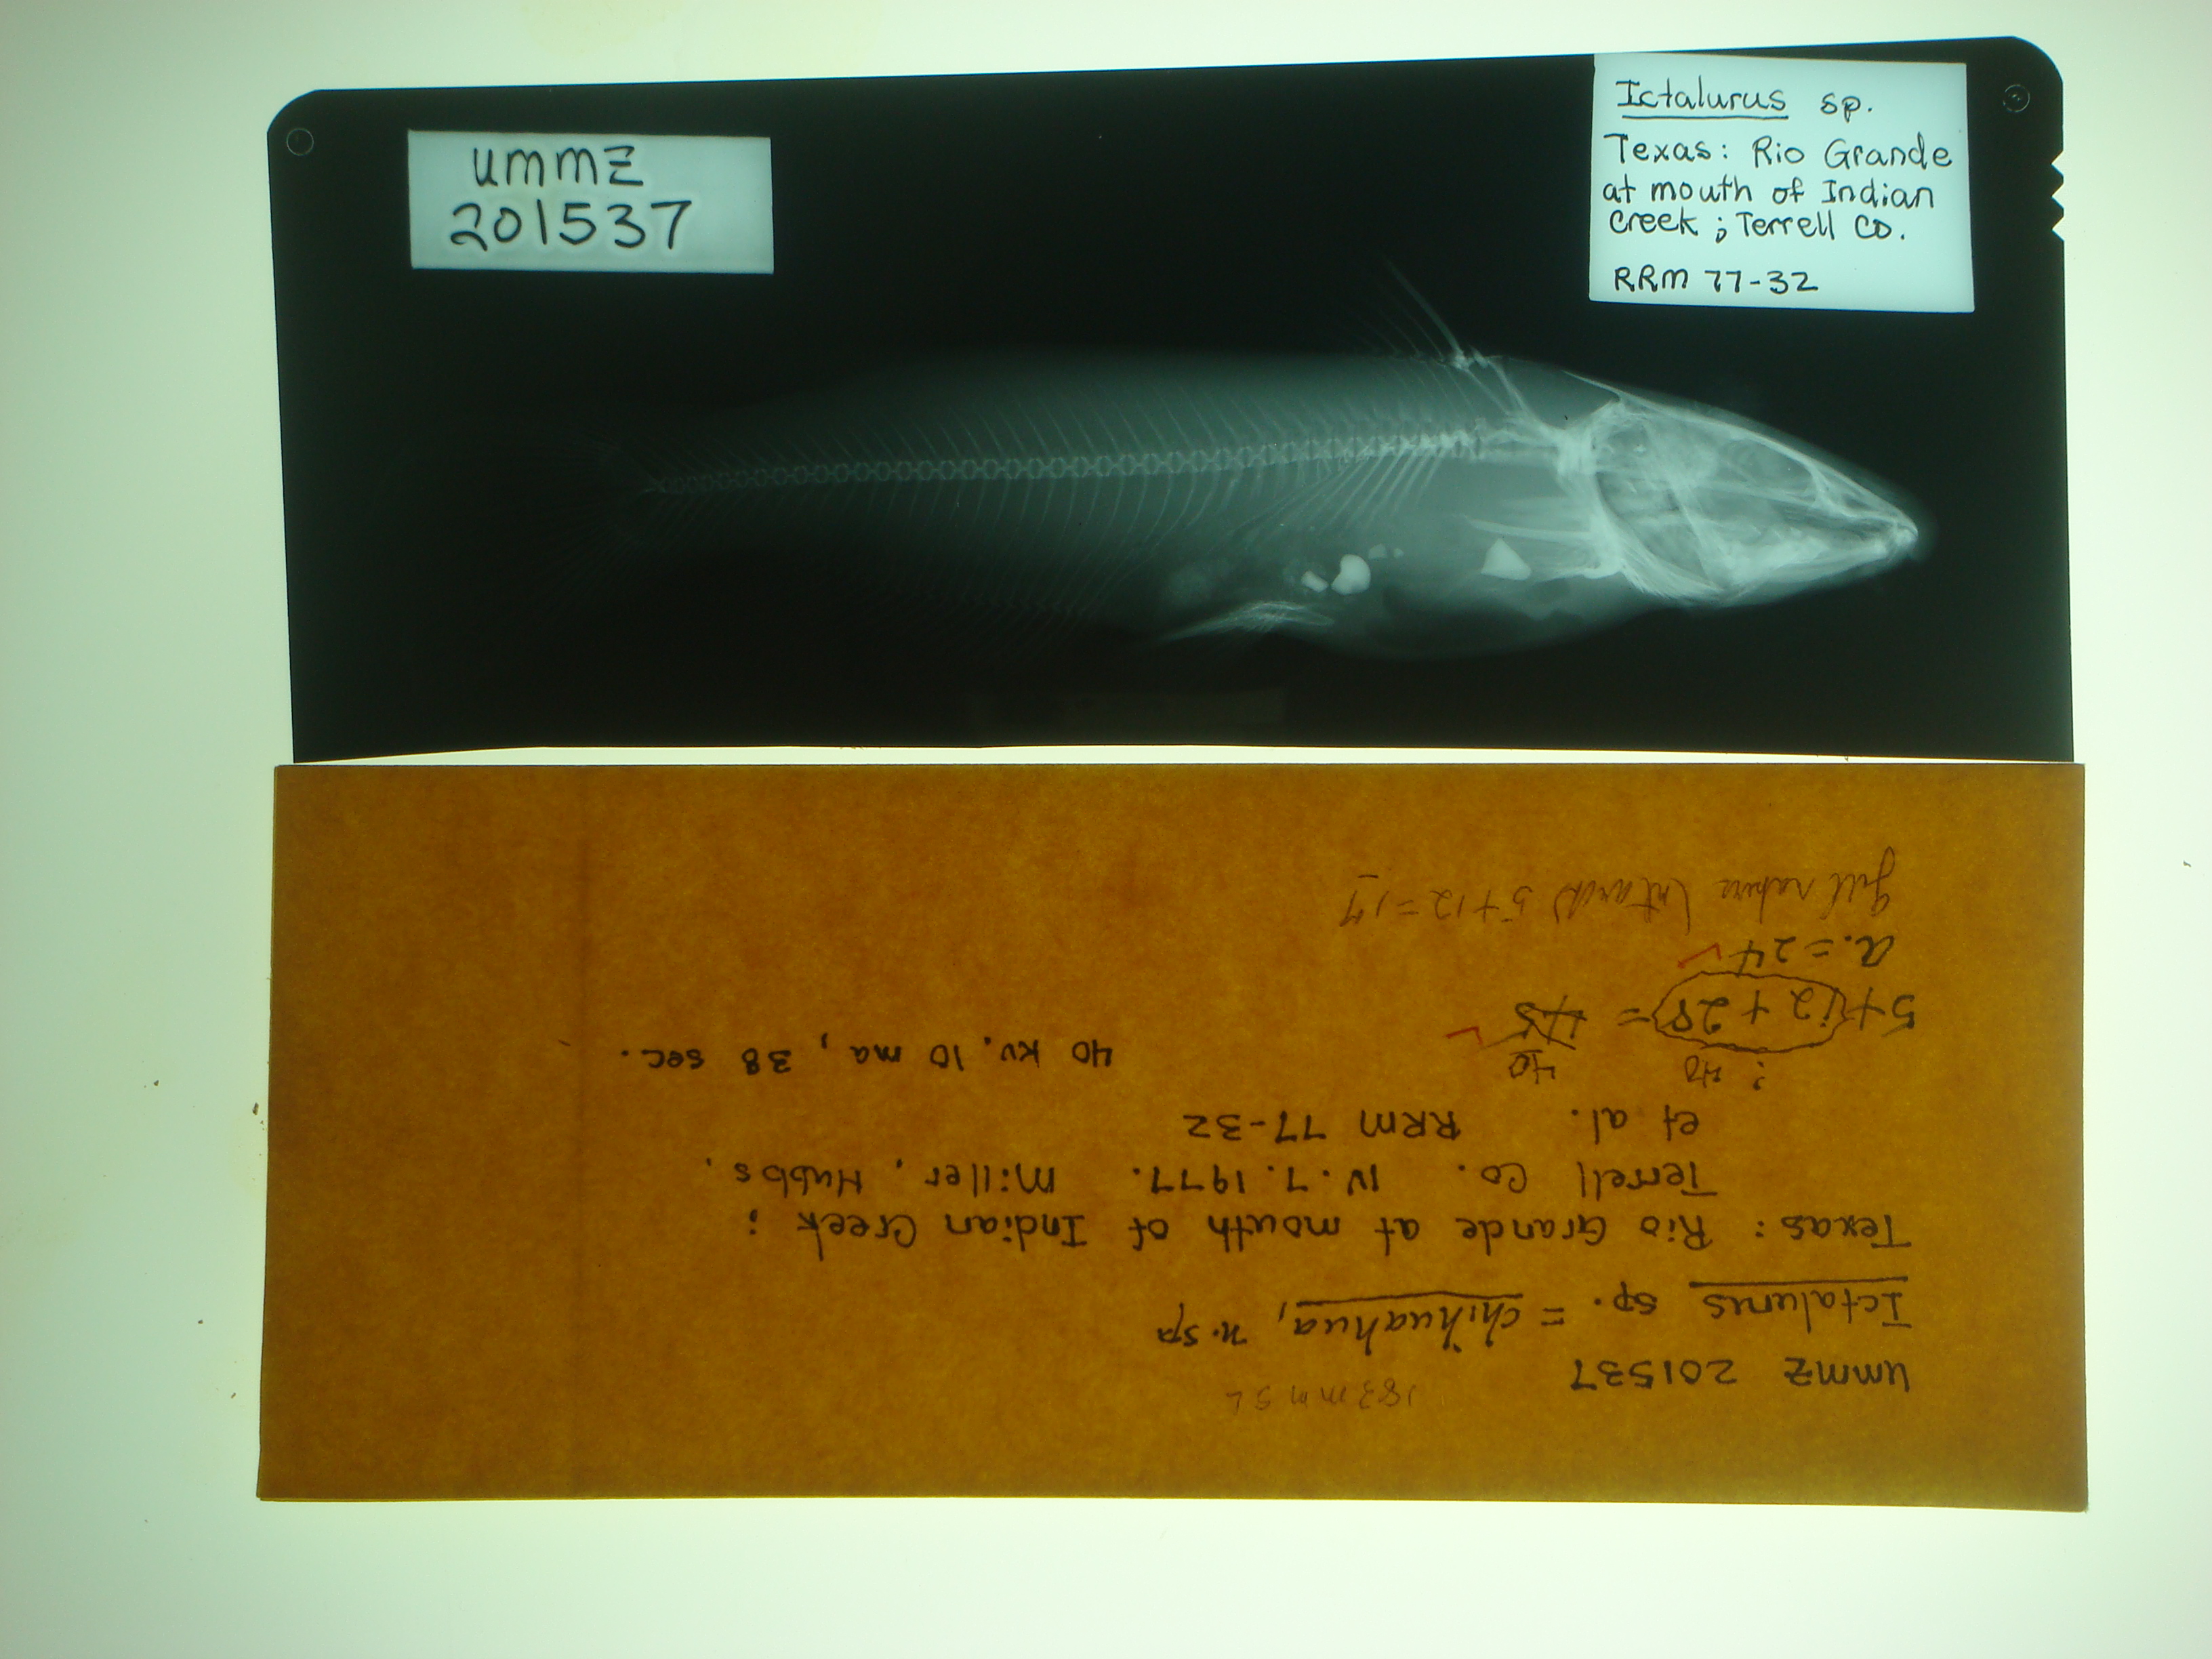 UMMZ
201537
Ictalurus sp.
Texas: Rio Grande
at mouth of Indian
Creek; Terrell Co.
RRM 77-32
183 mm SL
UMMZ 201537
Ictalurus sp. = chihuahua, n. sp
Texas: Rio Grande at mouth of Indian Creek;
Terrell Co. IV.7.1977. Miller, Hubbs,
et al. RRM 77-32
: 40 40
40 kv, 10 ma, 38 sec.
5+12+28 = 45
a. = 24
gill rakers 5+12=17